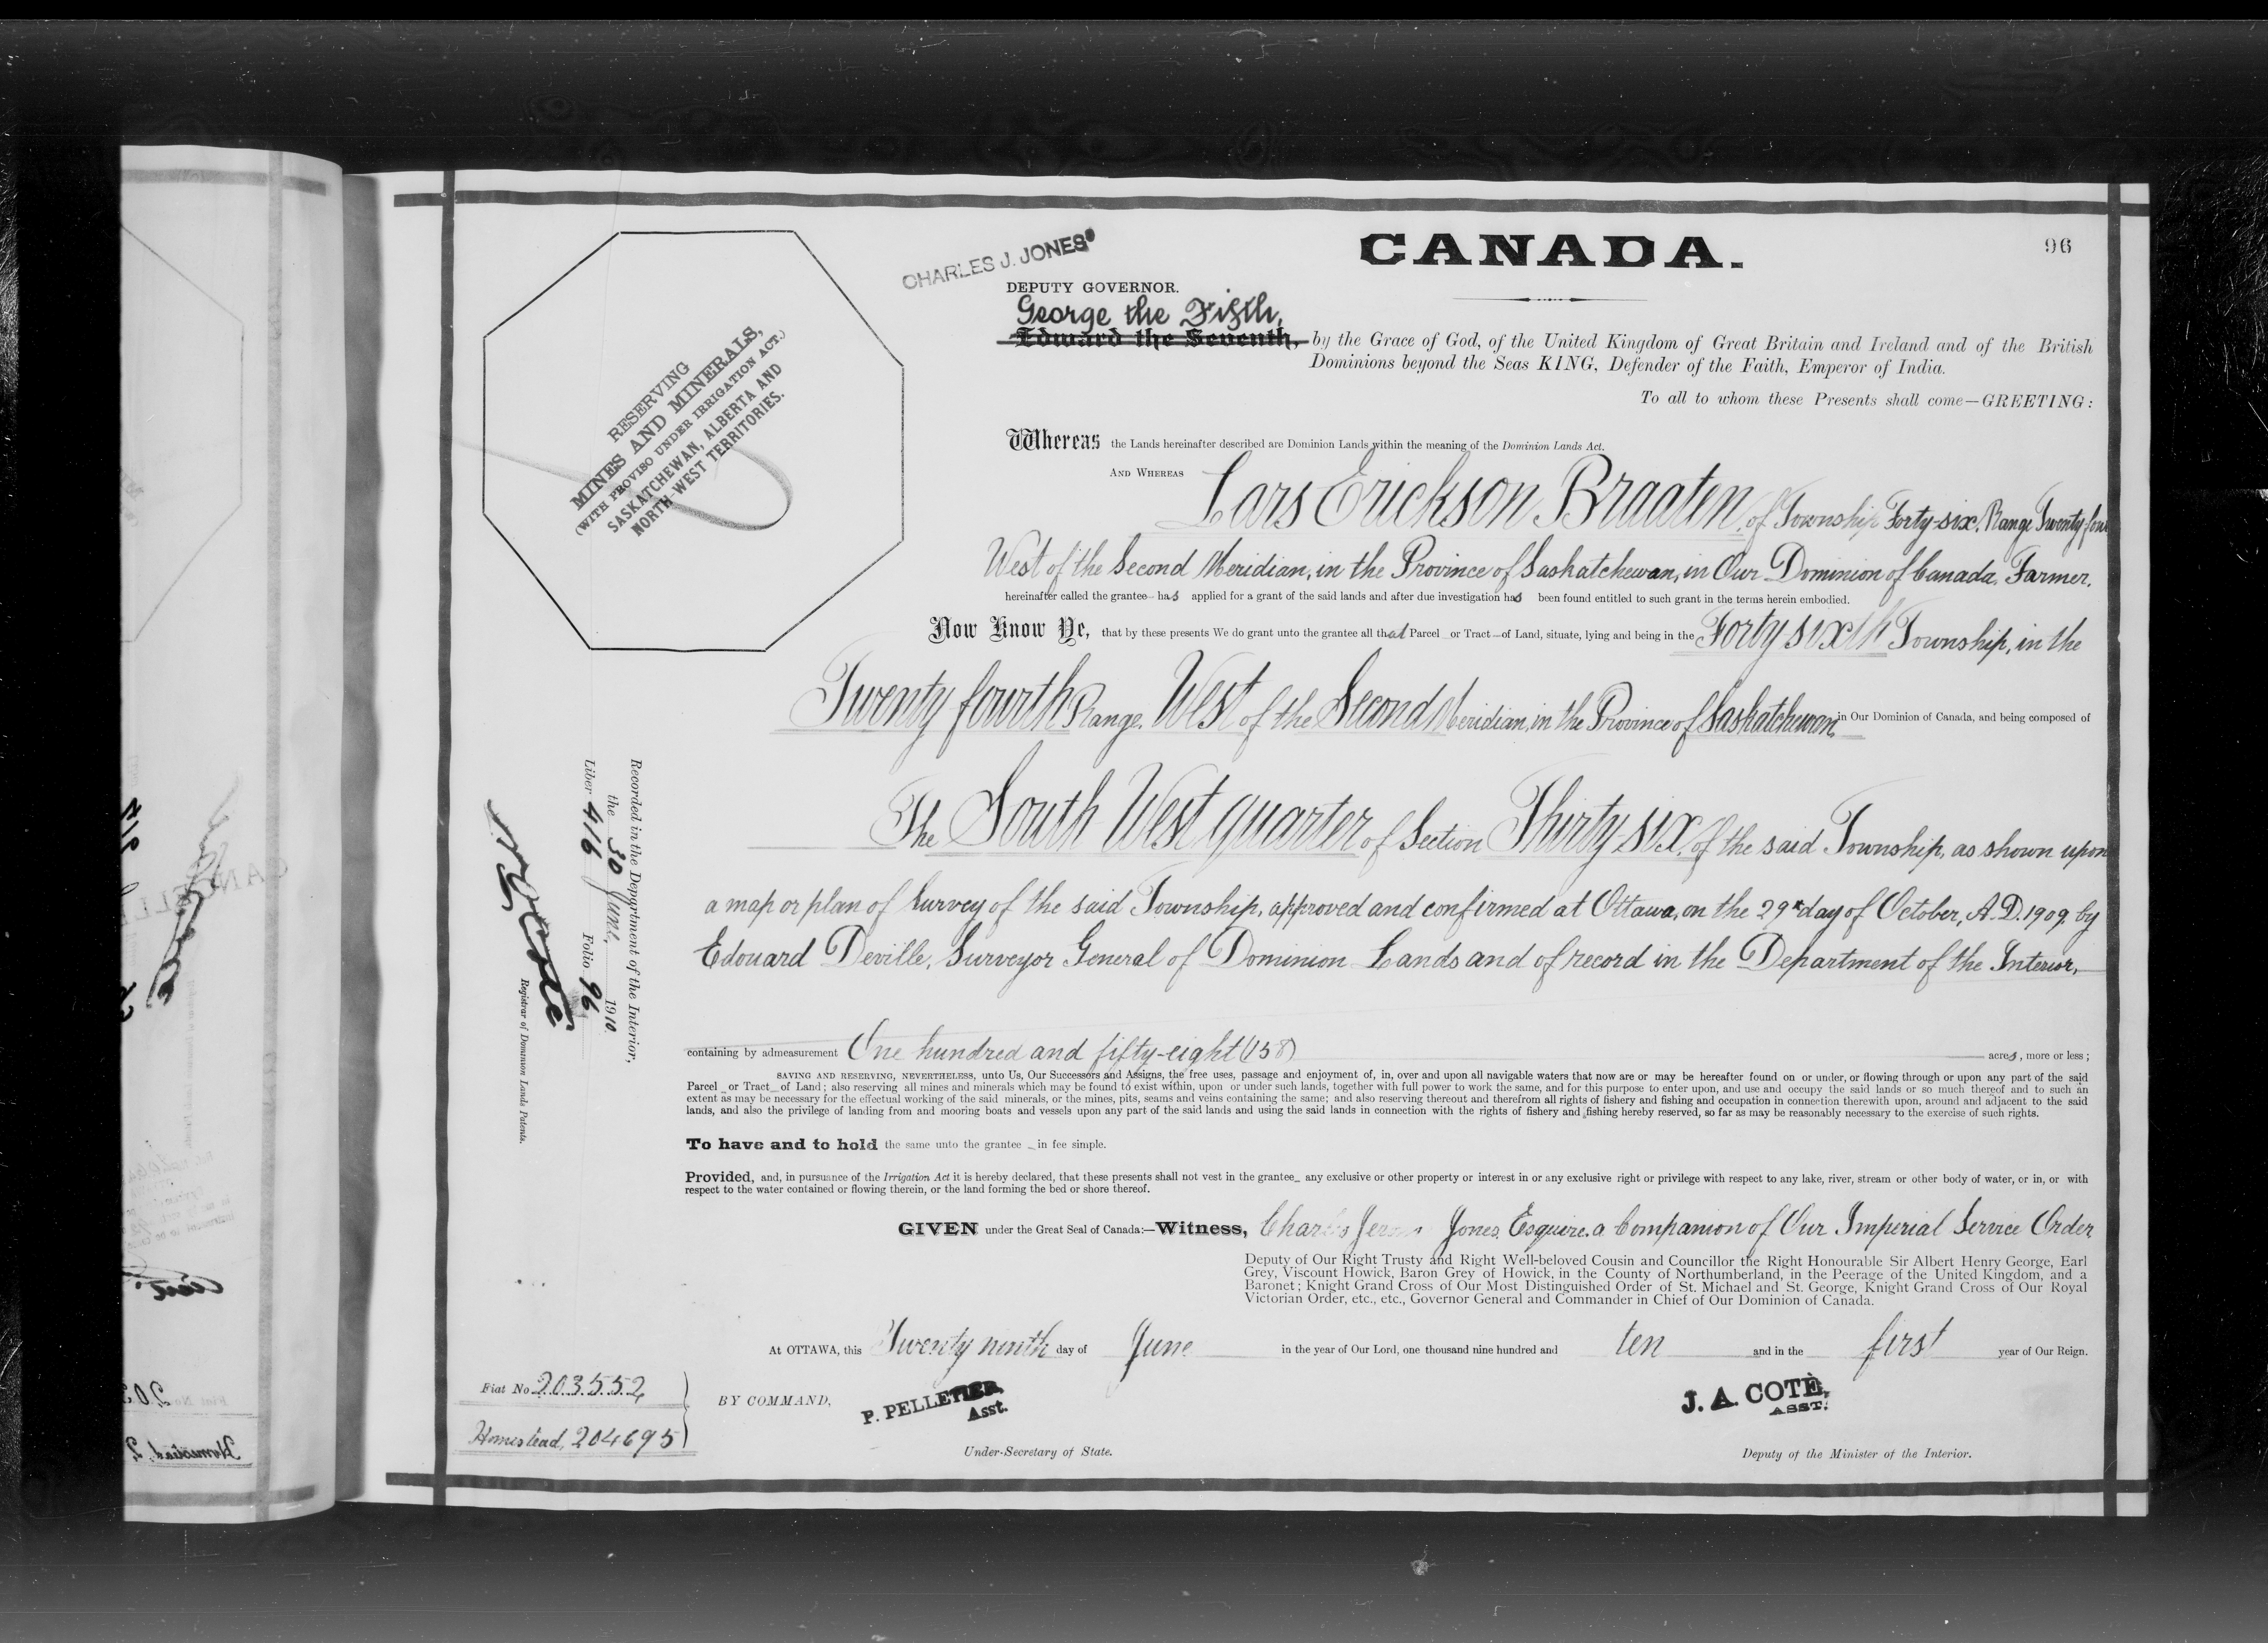 CANADA.
96
CHARLES J. JONES
DEPUTY GOVERNOR.
George the Fifth,
Edward the Seventh, by the Grace of God, of the United Kingdom of Great Britain and Ireland and of the British
Dominions beyond the Seas KING, Defender of the Faith, Emperor of India.
To all to whom these Presents shall come—GREETING:
RESERVING
MINES AND MINERALS,
(WITH PROVISO UNDER IRRIGATION ACT.)
SASKATCHEWAN, ALBERTA AND
NORTH WEST TERRITORIES.
Whereas the Lands hereinafter described are Dominion Lands within the meaning of the Dominion Lands Act.
AND WHEREAS Lars Erickson Braaten, of Township Forty-six, Range Twenty-four
West of the Second Meridian, in the Province of Saskatchewan, in Our Dominion of Canada, Farmer,
hereinafter called the grantee has applied for a grant of the said lands and after due investigation has been found entitled to such grant in the terms herein embodied.
Now Know Ye, that by these presents We do grant unto the grantee all that Parcel or Tract of Land, situate, lying and being in the Forty sixth Township, in the
Twenty fourth Range, West of the Second Meridian, in the Province of Saskatchewan, in Our Dominion of Canada, and being composed of
The South West quarter of Section Thirty-six, of the said Township, as shown upon
a map or plan of Survey of the said Township, approved and confirmed at Ottawa, on the 29th day of October, A.D. 1909, by
Edouard Deville, Surveyor General of Dominion Lands and of record in the Department of the Interior,
containing by admeasurement One hundred and fifty-eight (158) acres, more or less;
SAVING AND RESERVING, NEVERTHELESS, unto Us, Our Successors and Assigns, the free uses, passage and enjoyment of, in, over and upon all navigable waters that now are or may be hereafter found on or under, or flowing through or upon any part of the said
Parcel or Tract of Land; also reserving all mines and minerals which may be found to exist within, upon or under such lands, together with full power to work the same, and for this purpose to enter upon, and use and occupy the said lands or so much thereof and to such an
extent as may be necessary for the effectual working of the said minerals, or the mines, pits, seams and veins containing the same; and also reserving thereout and therefrom all rights of fishery and fishing and occupation in connection therewith upon, around and adjacent to the said
lands, and also the privilege of landing from and mooring boats and vessels upon any part of the said lands and using the said lands in connection with the rights of fishery and fishing hereby reserved, so far as may be reasonably necessary to the exercise of such rights.
To have and to hold the same unto the grantee in fee simple.
Provided, and, in pursuance of the Irrigation Act it is hereby declared, that these presents shall not vest in the grantee any exclusive or other property or interest in or any exclusive right or privilege with respect to any lake, river, stream or other body of water, or in, or with
respect to the water contained or flowing therein, or the land forming the bed or shore thereof.
GIVEN under the Great Seal of Canada:—Witness, Charles Jones, Esquire, a Companion of Our Imperial Service Order
Deputy of Our Right Trusty and Right Well-beloved Cousin and Councillor the Right Honourable Sir Albert Henry George, Earl
Grey, Viscount Howick, Baron Grey of Howick, in the County of Northumberland, in the Peerage of the United Kingdom, and a
Baronet; Knight Grand Cross of Our Most Distinguished Order of St. Michael and St. George, Knight Grand Cross of Our Royal
Victorian Order, etc., etc., Governor General and Commander in Chief of Our Dominion of Canada.
At OTTAWA, this Twenty ninth day of June in the year of Our Lord, one thousand nine hundred and ten and in the first year of Our Reign.
BY COMMAND,
P. PELLETIER,
Asst.
Under-Secretary of State.
J. A. COTÉ,
ASST.
Deputy of the Minister of the Interior.
Recorded in the Department of the Interior,
the 30 June, 1910.
Liber 416 Folio 96
Registrar of Dominion Lands Patents.
Fiat No 203552
Homestead, 204695